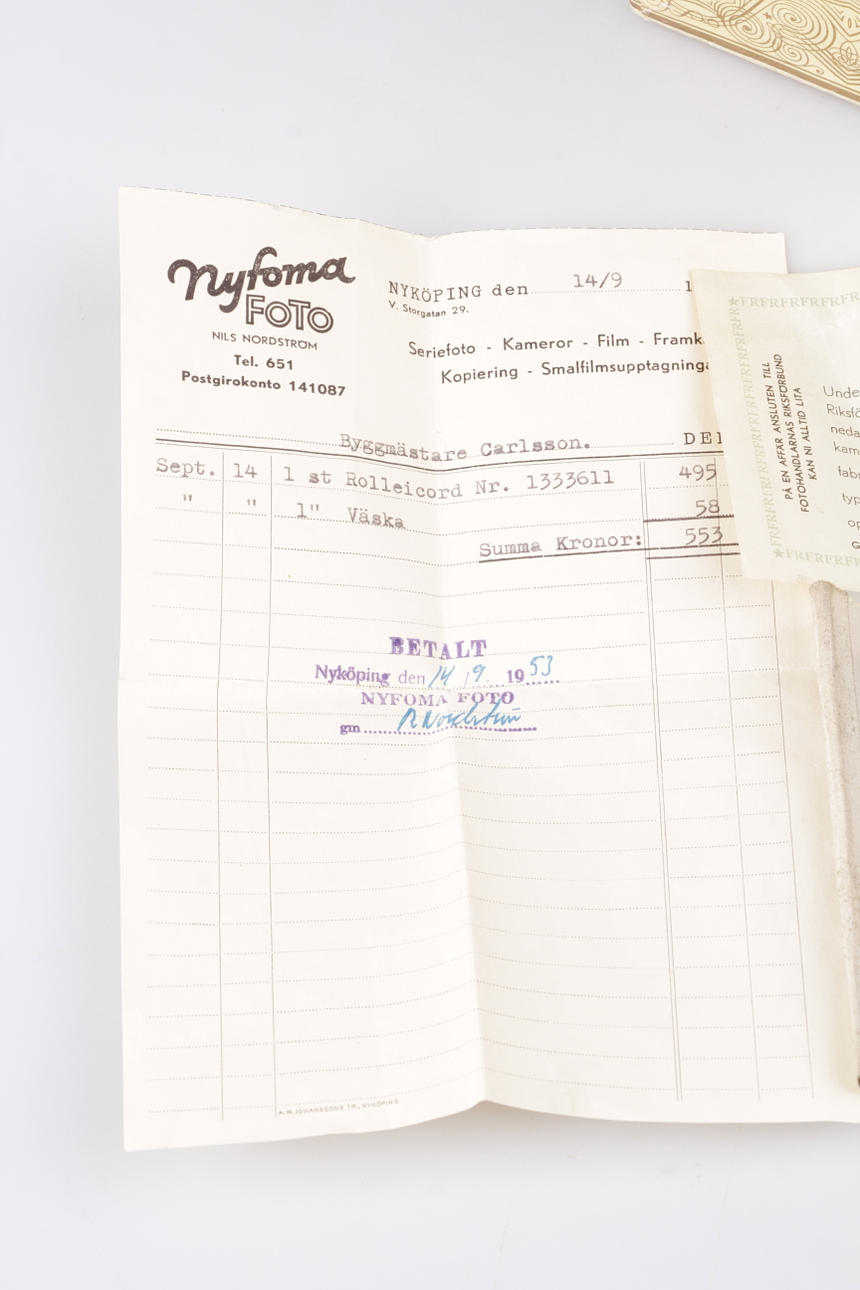 Nyfoma
FOTO
NILS NORDSTRÖM
Tel. 651
Postgirokonto 141087
NYKÖPING den 14/9 1
V. Storgatan 29.
Seriefoto - Kameror - Film - Framk
Kopiering - Smalfilmsupptagninga
Byggmästare Carlsson. DE
Sept. 14 1 st Rolleicord Nr. 1333611 495
" " 1" Väska 58
Summa Kronor: 553
BETALT
Nyköping den 14/9 1953
NYFOMA FOTO
gm Nordström
A. M. JOHANSSONS TR., NYKÖPING
★FRFRFRFRFRFRFR
PÅ EN AFFÄR ANSLUTEN TILL
FOTOHANDLARNAS RIKSFÖRBUND
KAN NI ALLTID LITA
Unde
Riksfö
neda
kam
fabr
typ
op
G
★FRFRFRF